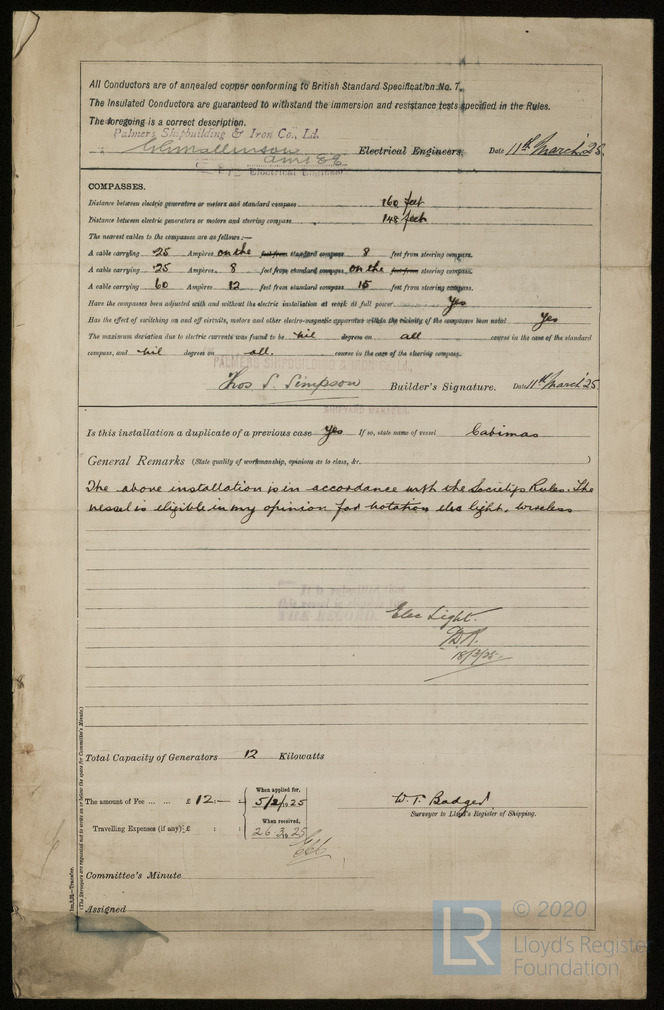 All Conductors are of annealed copper conforming to British Standard Specification No. 7.
The Insulated Conductors are guaranteed to withstand the immersion and resistance tests specified in the Rules.
The foregoing is a correct description.
Palmers Shipbuilding & Iron Co., Ld.
Electrical Engineers. Date 11th March '25.
COMPASSES.
Distance between electric generators or motors and standard compass 160 feet
Distance between electric generators or motors and steering compass 148 feet
The nearest cables to the compasses are as follows:—
A cable carrying 25 Ampères on the feet from standard compass 8 feet from steering compass.
A cable carrying 25 Ampères 8 feet from standard compass on the feet from steering compass.
A cable carrying 60 Ampères 12 feet from standard compass 15 feet from steering compass.
Have the compasses been adjusted with and without the electric installation at work at full power Yes
Has the effect of switching on and off circuits, motors and other electro-magnetic apparatus within the vicinity of the compasses been noted Yes
The maximum deviation due to electric currents was found to be nil degrees on all course in the case of the standard
compass, and nil degrees on all. course in the case of the steering compass.
PALMERS SHIPBUILDING &
Thos S. Simpson Builder's Signature. Date 11th March '25
SHIPYARD MANAGER.
Is this installation a duplicate of a previous case Yes If so, state name of vessel Cabimas
General Remarks (State quality of workmanship, opinions as to class, &c. )
The above installation is in accordance with the Society's Rules. The
vessel is eligible in my opinion for notation elec light, wireless
Elec Light.
18/3/25.
Total Capacity of Generators 12 Kilowatts
The amount of Fee ... ... £ 12:— When applied for, 5/2/1925
W. T. Badger
Surveyor to Lloyd's Register of Shipping.
Travelling Expenses (if any) £ : : When received, 26.3.1925
Committee's Minute
Assigned
Im.3,21.—Transfer.
(The Surveyors are requested not to write on or below the space for Committee's Minute.)
LR
© 2020
Lloyd's Register
Foundation